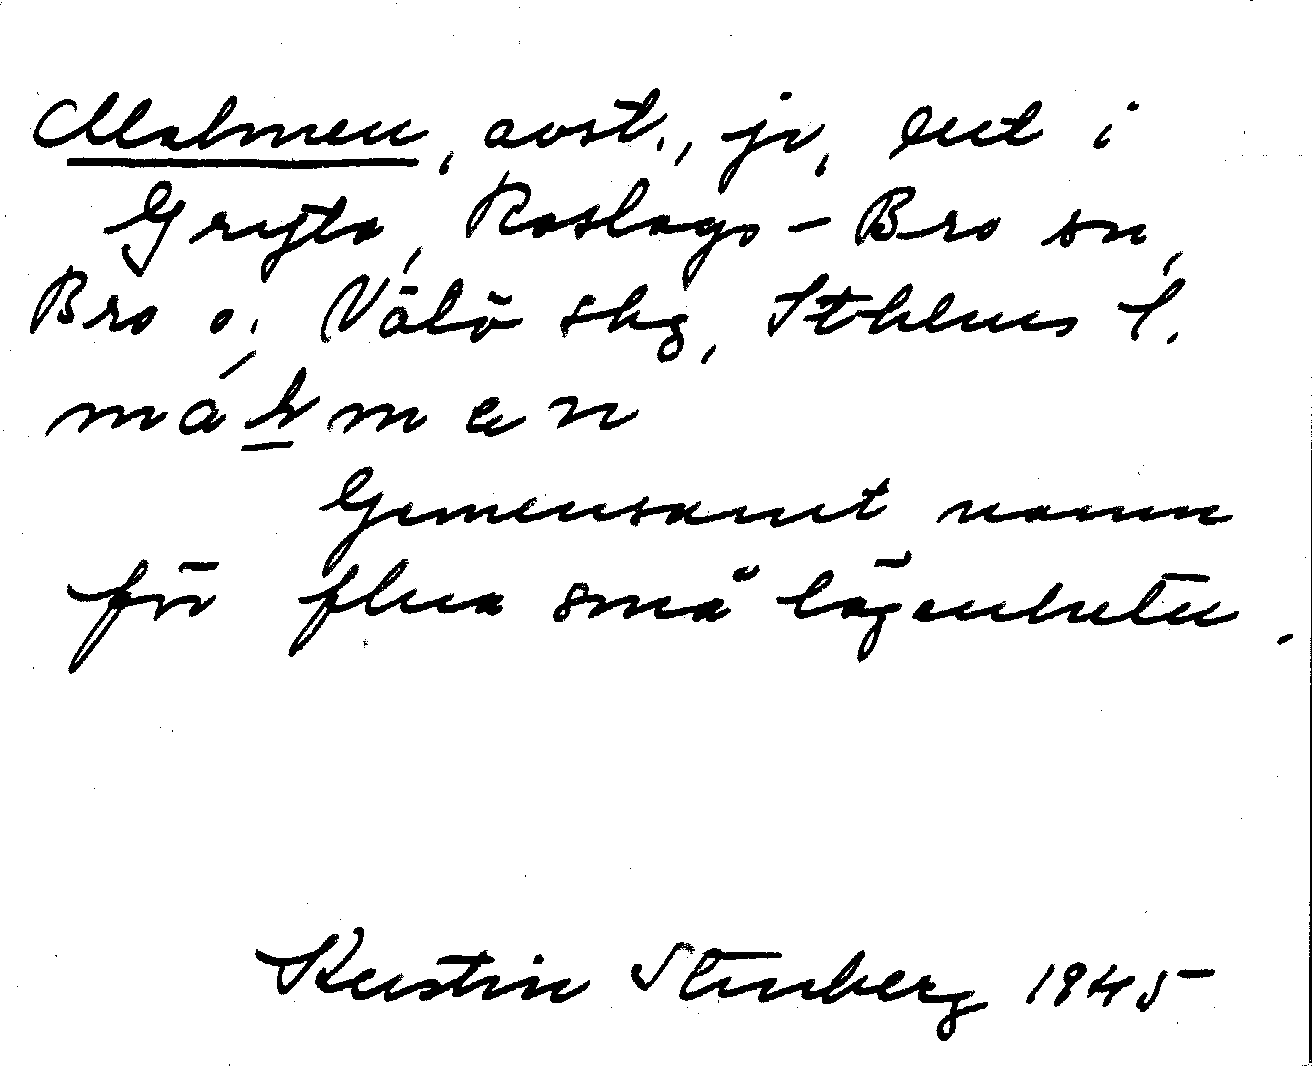 Malmen, avst., jv, beb i
Gryta, Roslags-Bro sn,
Bro o. Vätö skg, Sthlms l.
málmen
Gemensamt namn
för flera små lägenheter.
Kerstin Stenberg 1945